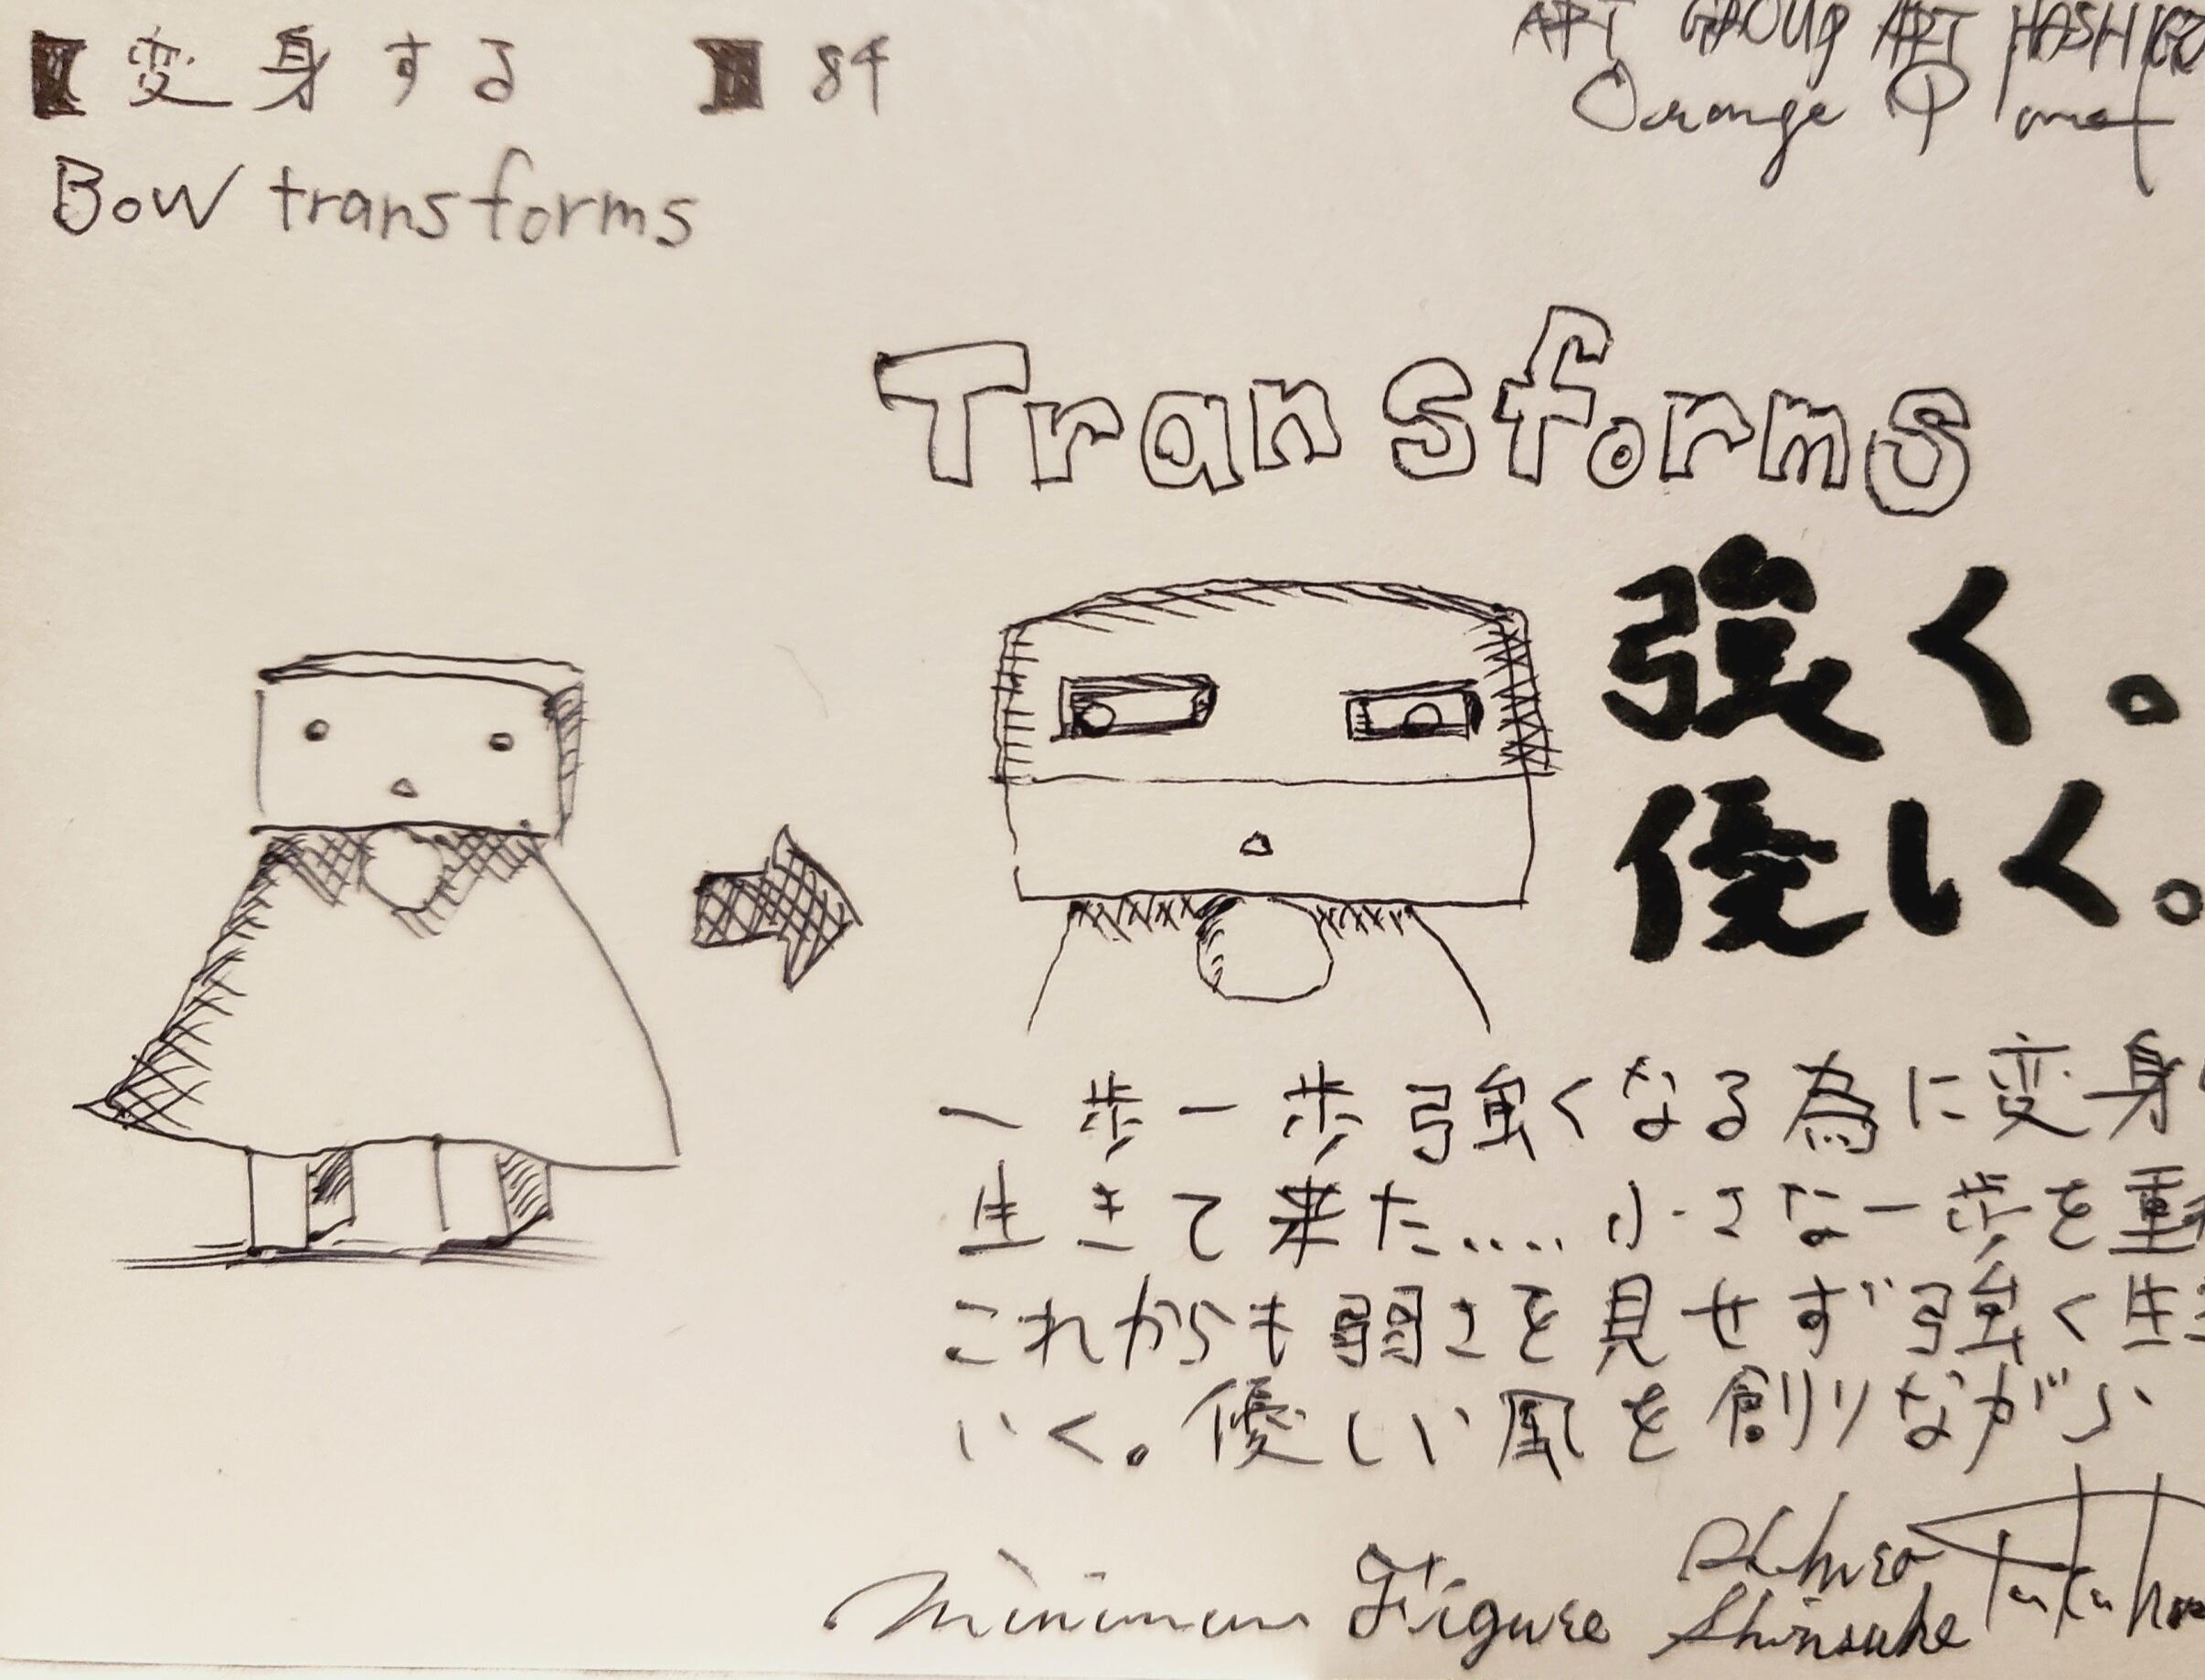 【変身する 】84
ART GROUP ART HASHIGO
Orange Planet
Bow transforms
Transforms
強く。
優しく。
一歩一歩強くなる為に変身
生きて来た....小さな一歩を重
これからも弱さを見せず強く生き
いく。優しい風を創りながら
Minimum Figure
Shinsuke